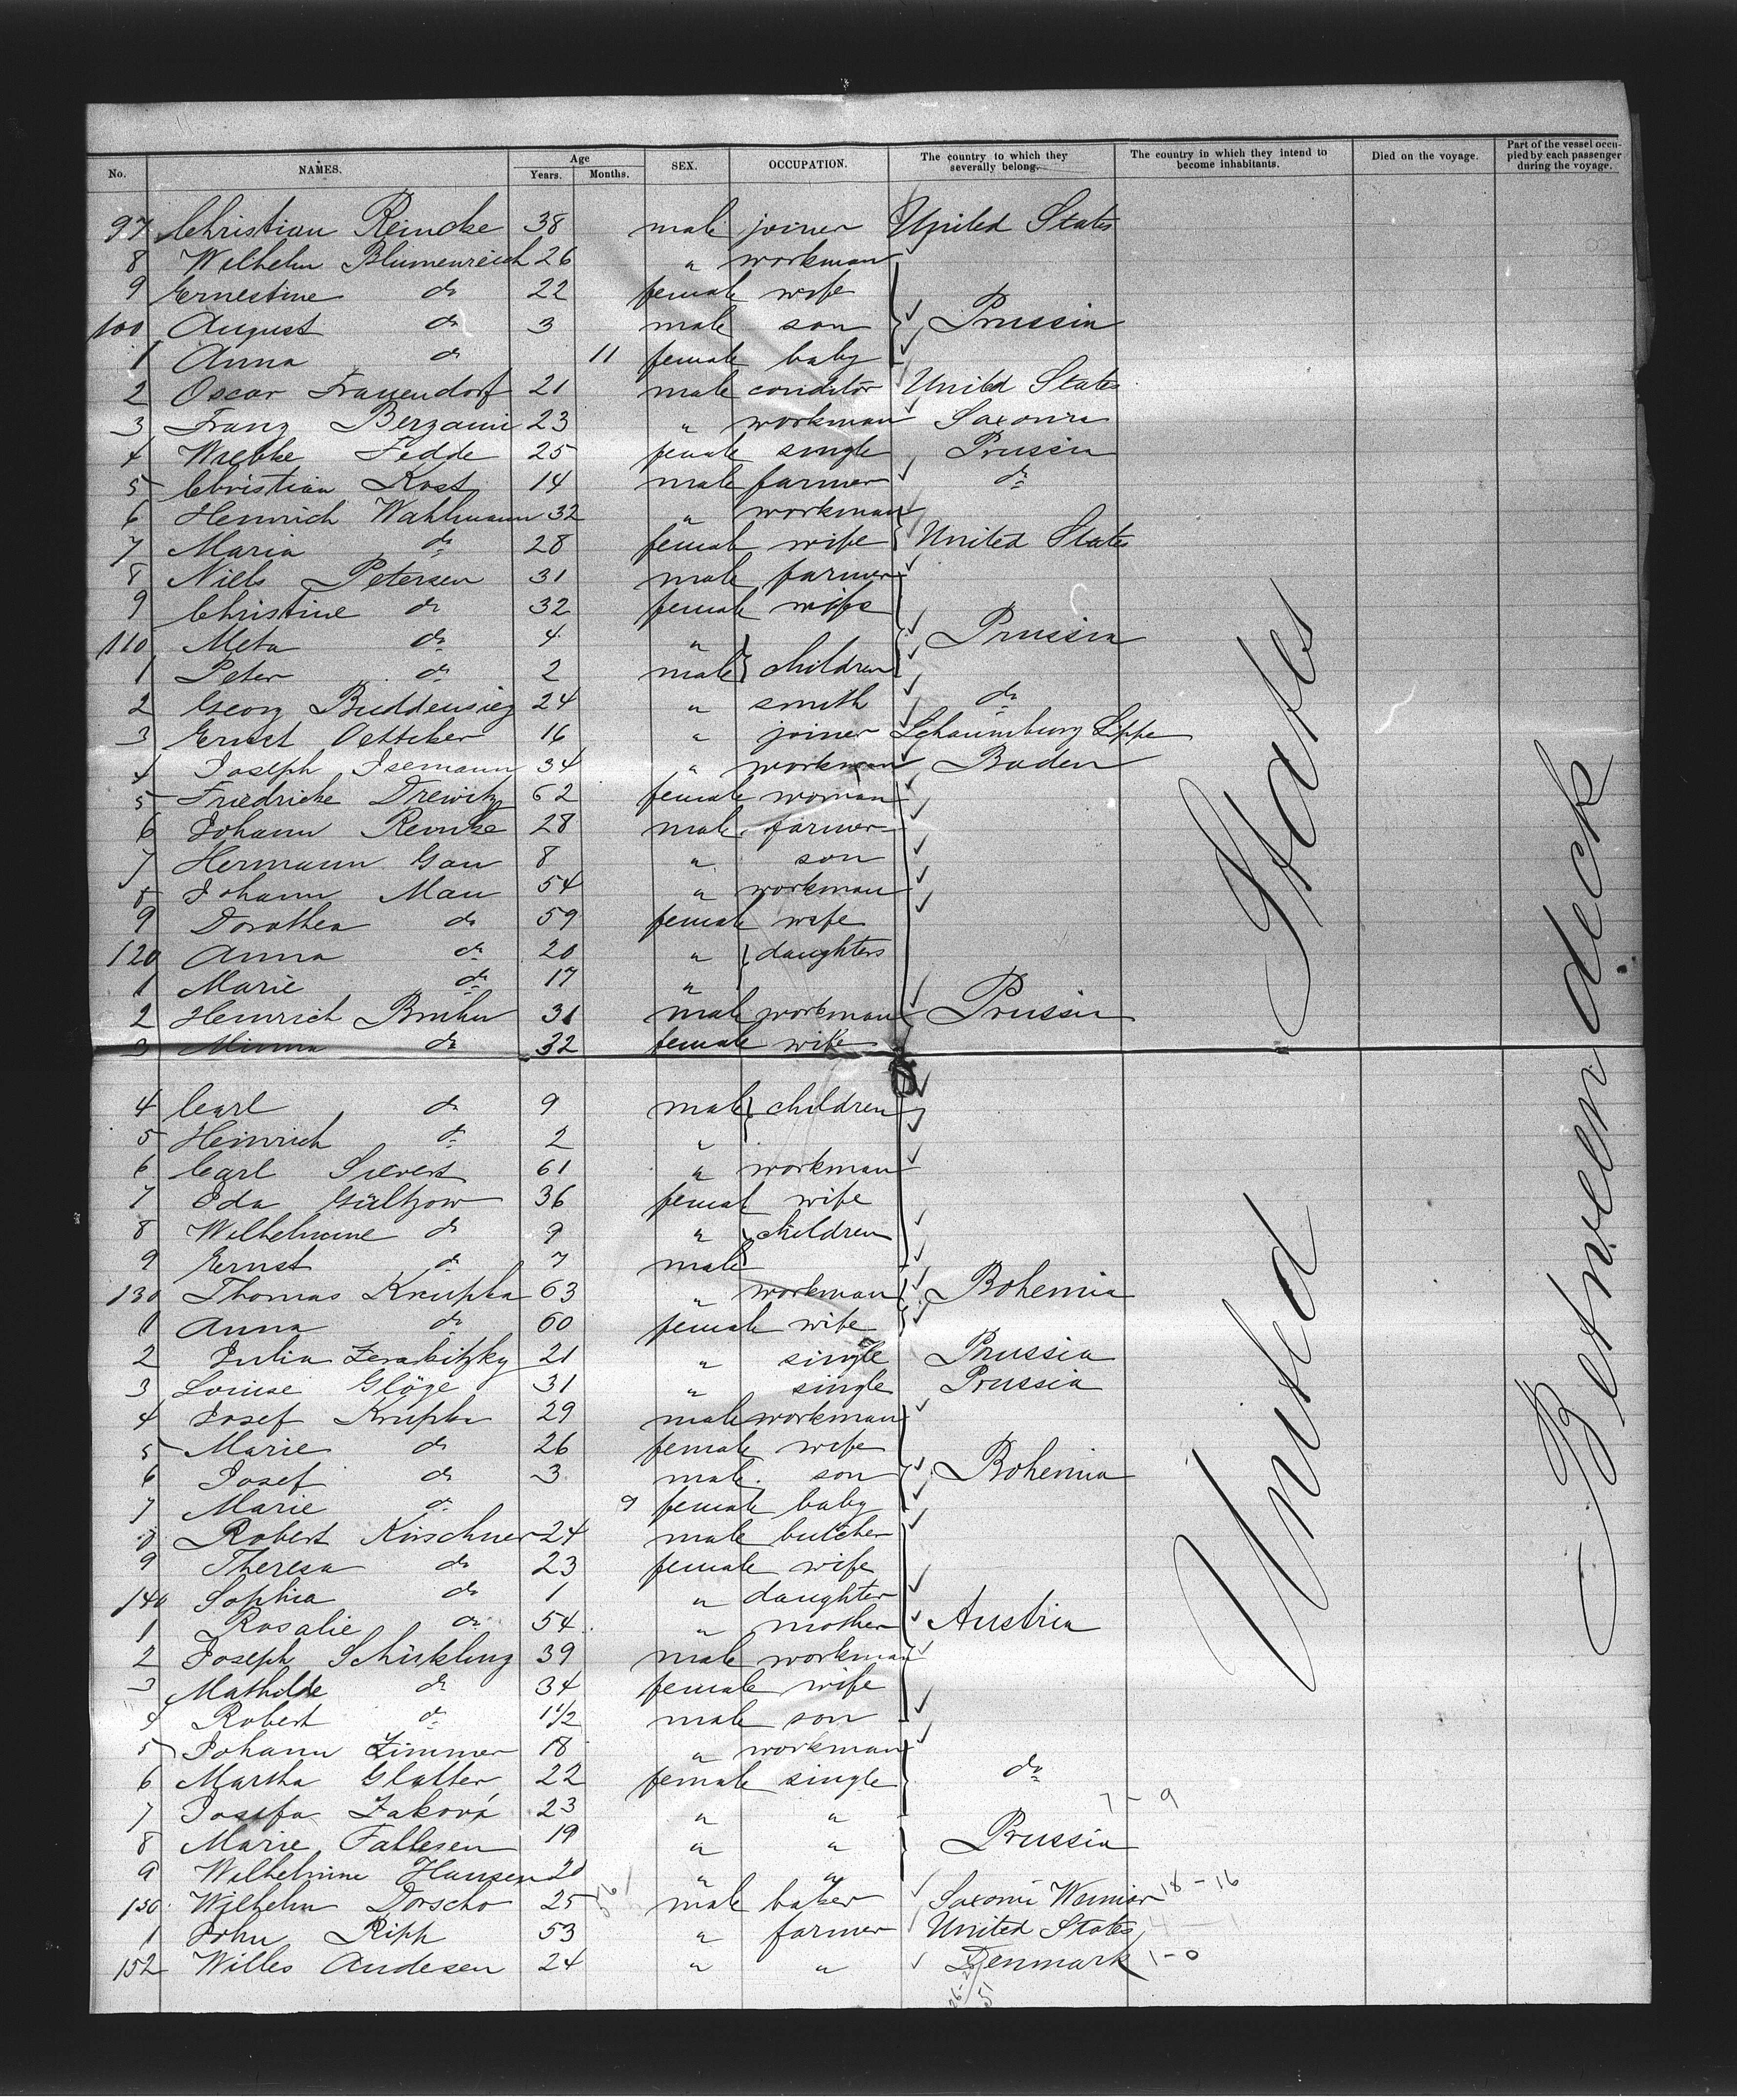 No. NAMES. Age Years. Months. SEX. OCCUPATION. The country to which they severally belong. The country in which they intend to become inhabitants. Died on the voyage. Part of the vessel occupied by each passenger during the voyage.
97 Christian Reincke 38 male joiner United States
8 Wilhelm Blumenreich 26 " workman
9 Ernestine do 22 female wife
100 August do 3 male son Prussia
1 Anna do 11 female baby
2 Oscar Frauendorf 21 male conditor United States
3 Franz Bergami 23 " workman Saxonia
4 Wiebke Fedde 25 female single Prussia
5 Christian Kost 14 male farmer do
6 Heinrich Wahlmann 32 " workman
7 Maria do 28 female wife United States
8 Niels Petersen 31 male farmer
9 Christine do 32 female wife
110 Meta do 4 " Prussia
1 Peter do 2 male children
2 Georg Buddensieg 24 " smith do
3 Ernst Oettcker 16 " joiner Schaumburg Lippe
4 Joseph Isemann 34 " workman Baden
5 Friedricke Drewitz 62 female woman
6 Johann Remke 28 male farmer
7 Hermann Gau 8 " son
8 Johann Mau 54 " workman
9 Dorothea do 59 female wife
120 Anna do 20 " daughters
1 Marie do 17 "
2 Heinrich Bruhn 31 male workman Prussia
3 Minna do 32 female wife
4 Carl do 9 male children
5 Heinrich do 2 "
6 Carl Sievers 61 " workman
7 Ida Gültzow 36 female wife
8 Wilhelmine do 9 " children
9 Ernst do 7 male
130 Thomas Krupka 63 " workman Bohemia
1 Anna do 60 female wife
2 Julia 21 " single Prussia
3 Louise Glöge 31 " single Prussia
4 Josef Krupka 29 male workman
5 Marie do 26 female wife
6 Josef do 3 male son Bohemia
7 Marie do 9 female baby
8 Robert Kirschner 24 male butcher
9 Theresa do 23 female wife
140 Sophia do 1 " daughter
1 Rosalie do 54 " mother Austria
2 Joseph Schickling 39 male workman
3 Mathilde do 34 female wife
4 Robert do 1 1/2 male son
5 Johann Zimmer 18 " workman
6 Martha Glatter 22 female single do
7 Josefa Zaková 23 " " 7-9
8 Marie Fallesen 19 " " Prussia
9 Wilhelmine Hansen 20 " "
150 Wilhelm Dorscho 25 male baker Saxonie Weimar 18-16
1 John Ripk 53 " farmer United States 4-1
152 Willes Andesen 24 " " Denmark 1-0
United States
Between deck